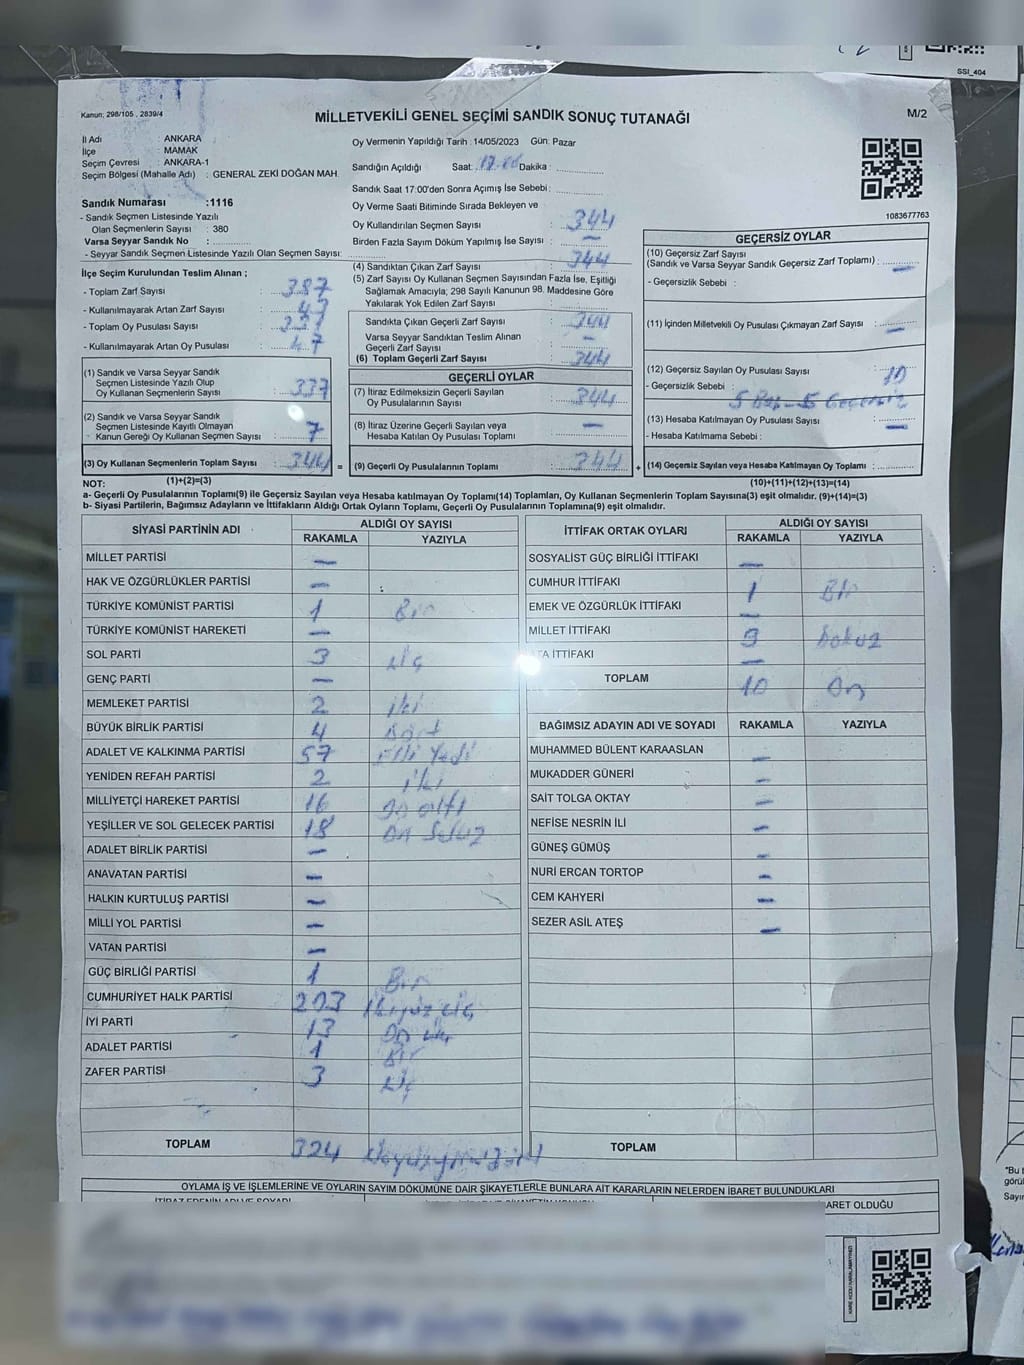 SSI_404
Kanun: 298/105 , 2839/4
MİLLETVEKİLİ GENEL SEÇİMİ SANDIK SONUÇ TUTANAĞI
M/2
İl Adı : ANKARA
İlçe : MAMAK
Seçim Çevresi : ANKARA-1
Seçim Bölgesi (Mahalle Adı) : GENERAL ZEKİ DOĞAN MAH.
Sandık Numarası :1116
- Sandık Seçmen Listesinde Yazılı
Olan Seçmenlerin Sayısı : 380
Varsa Seyyar Sandık No :
- Seyyar Sandık Seçmen Listesinde Yazılı Olan Seçmen Sayısı:
İlçe Seçim Kurulundan Teslim Alınan ;
- Toplam Zarf Sayısı : 387
- Kullanılmayarak Artan Zarf Sayısı : 43
- Toplam Oy Pusulası Sayısı :
- Kullanılmayarak Artan Oy Pusulası :
(1) Sandık ve Varsa Seyyar Sandık
Seçmen Listesinde Yazılı Olup
Oy Kullanan Seçmenlerin Sayısı : 337
(2) Sandık ve Varsa Seyyar Sandık
Seçmen Listesinde Kayıtlı Olmayan
Kanun Gereği Oy Kullanan Seçmen Sayısı : 7
(3) Oy Kullanan Seçmenlerin Toplam Sayısı : 344 =
Oy Vermenin Yapıldığı Tarih : 14/05/2023 Gün: Pazar
Sandığın Açıldığı Saat: Dakika :
Sandık Saat 17:00'den Sonra Açımış İse Sebebi:
Oy Verme Saati Bitiminde Sırada Bekleyen ve
Oy Kullandırılan Seçmen Sayısı : 344
Birden Fazla Sayım Döküm Yapılmış İse Sayısı : —
(4) Sandıktan Çıkan Zarf Sayısı : 344
(5) Zarf Sayısı Oy Kullanan Seçmen Sayısından Fazla İse, Eşitliği
Sağlamak Amacıyla; 298 Sayılı Kanunun 98. Maddesine Göre
Yakılarak Yok Edilen Zarf Sayısı :
Sandıkta Çıkan Geçerli Zarf Sayısı : 344
Varsa Seyyar Sandıktan Teslim Alınan
Geçerli Zarf Sayısı : —
(6) Toplam Geçerli Zarf Sayısı : 344
GEÇERLİ OYLAR
(7) İtiraz Edilmeksizin Geçerli Sayılan
Oy Pusulalarının Sayısı : 344
(8) İtiraz Üzerine Geçerli Sayılan veya
Hesaba Katılan Oy Pusulası Toplamı : —
(9) Geçerli Oy Pusulalarının Toplamı : 344 +
1083677763
GEÇERSİZ OYLAR
(10) Geçersiz Zarf Sayısı
(Sandık ve Varsa Seyyar Sandık Geçersiz Zarf Toplamı) : —
- Geçersizlik Sebebi :
(11) İçinden Milletvekili Oy Pusulası Çıkmayan Zarf Sayısı : —
(12) Geçersiz Sayılan Oy Pusulası Sayısı : 10
- Geçersizlik Sebebi : 5 Boş - 5 Geçersiz
(13) Hesaba Katılmayan Oy Pusulası Sayısı : —
- Hesaba Katılmama Sebebi :
(14) Geçersiz Sayılan veya Hesaba Katılmayan Oy Toplamı :
NOT: (1)+(2)=(3) (10)+(11)+(12)+(13)=(14)
a- Geçerli Oy Pusulalarının Toplamı(9) ile Geçersiz Sayılan veya Hesaba katılmayan Oy Toplamı(14) Toplamları, Oy Kullanan Seçmenlerin Toplam Sayısına(3) eşit olmalıdır. (9)+(14)=(3)
b- Siyasi Partilerin, Bağımsız Adayların ve İttifakların Aldığı Ortak Oyların Toplamı, Geçerli Oy Pusulalarının Toplamına(9) eşit olmalıdır.
SİYASİ PARTİNİN ADI ALDIĞI OY SAYISI
RAKAMLA YAZIYLA
MİLLET PARTİSİ —
HAK VE ÖZGÜRLÜKLER PARTİSİ —
TÜRKİYE KOMÜNİST PARTİSİ 1 Bir
TÜRKİYE KOMÜNİST HAREKETİ —
SOL PARTİ 3 üç
GENÇ PARTİ —
MEMLEKET PARTİSİ 2 iki
BÜYÜK BİRLİK PARTİSİ 4 Dört
ADALET VE KALKINMA PARTİSİ 57 Elli Yedi
YENİDEN REFAH PARTİSİ 2 iki
MİLLİYETÇİ HAREKET PARTİSİ 16 on altı
YEŞİLLER VE SOL GELECEK PARTİSİ 18 on Sekiz
ADALET BİRLİK PARTİSİ —
ANAVATAN PARTİSİ —
HALKIN KURTULUŞ PARTİSİ —
MİLLİ YOL PARTİSİ —
VATAN PARTİSİ —
GÜÇ BİRLİĞİ PARTİSİ 1 Bir
CUMHURİYET HALK PARTİSİ 203 İkiyüz üç
İYİ PARTİ 13 On üç
ADALET PARTİSİ 1 Bir
ZAFER PARTİSİ 3 üç
TOPLAM 324
İTTİFAK ORTAK OYLARI ALDIĞI OY SAYISI
RAKAMLA YAZIYLA
SOSYALİST GÜÇ BİRLİĞİ İTTİFAKI —
CUMHUR İTTİFAKI 1 Bir
EMEK VE ÖZGÜRLÜK İTTİFAKI —
MİLLET İTTİFAKI 9 Dokuz
TA İTTİFAKI —
TOPLAM 10 On
BAĞIMSIZ ADAYIN ADI VE SOYADI RAKAMLA YAZIYLA
MUHAMMED BÜLENT KARAASLAN —
MUKADDER GÜNERİ —
SAİT TOLGA OKTAY —
NEFİSE NESRİN İLİ —
GÜNEŞ GÜMÜŞ —
NURİ ERCAN TORTOP —
CEM KAHYERİ —
SEZER ASİL ATEŞ —
TOPLAM
OYLAMA İŞ VE İŞLEMLERİNE VE OYLARIN SAYIM DÖKÜMÜNE DAİR ŞİKAYETLERLE BUNLARA AİT KARARLARIN NELERDEN İBARET BULUNDUKLARI
İTİRAZ EDENİN ADI VE SOYADI
BARET OLDUĞU
"Bu t
görül
Sayır